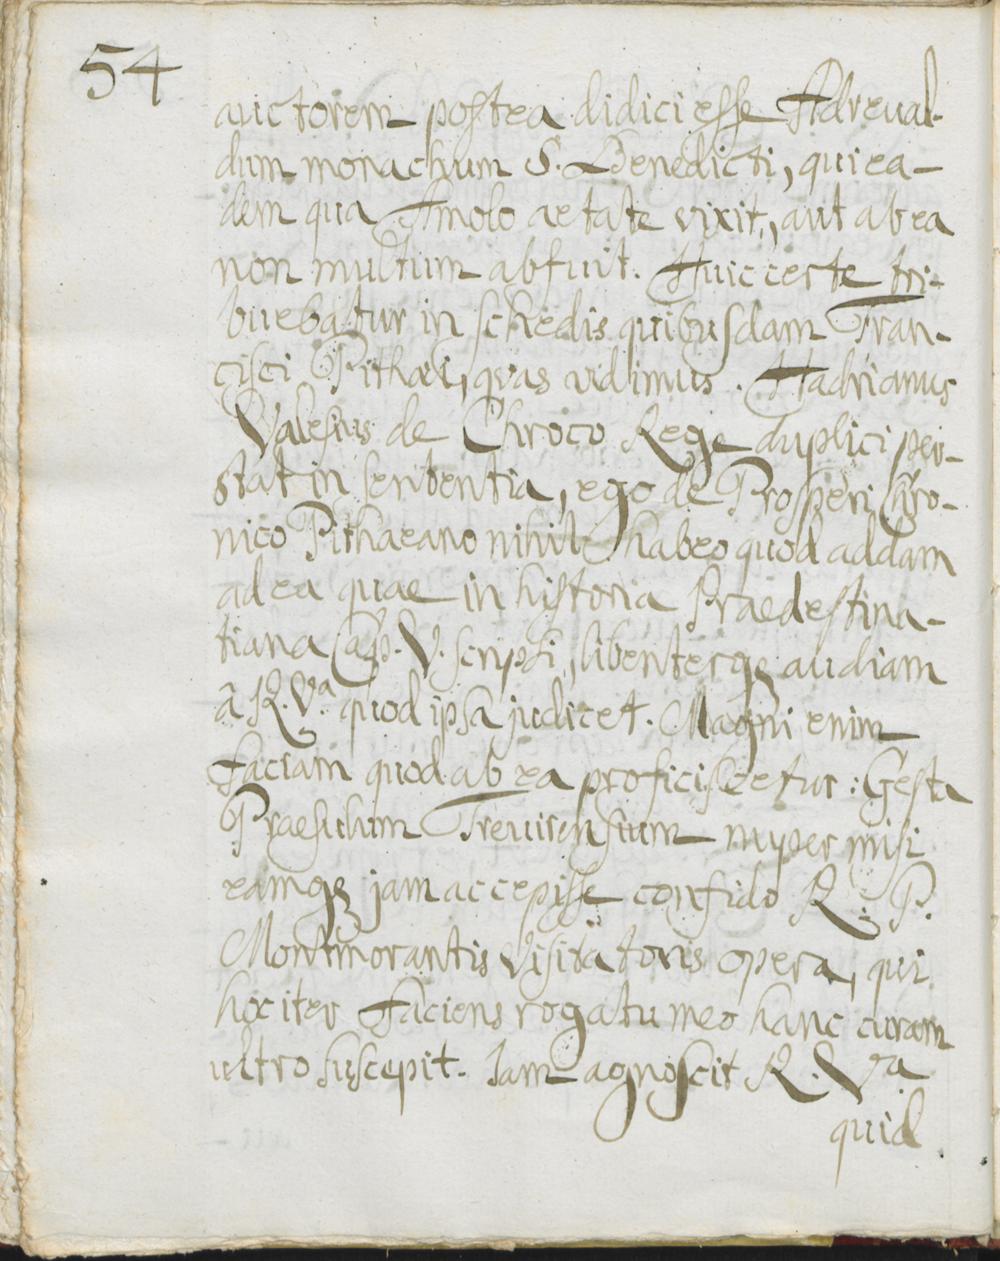 54
auctorem postea didici esse Adreval-
dum monachum S. Benedicti, qui ea-
dem qua Amolo aetate vixit, aut ab ea
non multum abfuit. Huic certe tri-
buebatur in schedis quibusdam Fran-
cisci Pithaei, quas vidimus. Hadrianus
Valesius de Chroco Rege duplici per-
stat in sententia, ego de Prosperi Chro-
nico Pithaeano nihil habeo quod addam
ad ea quae in historia Praedestina-
tiana Cap. V. scripsi, libenterqe audiam
a R. Va quod ipsa judicet. Magni enim
faciam quod ab ea proficiscetur: Gesta
Praesulum Trevirensium nuper misi
eamqe jam accepisse confido R. P.
Montmorantis Visitatoris opera, qui
hoc iter faciens rogatu meo hanc curam
ultro suscepit. Iam agnoscit R. Va
quid